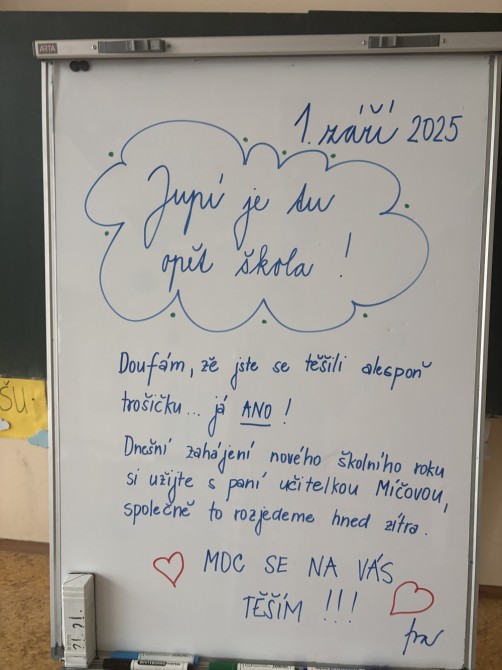 ARTA
1. září 2025
Jupí je tu
opět škola!
ŠU.
Doufám, že jste se těšili alespoň
trošičku... já ANO!
Dnešní zahájení nového školního roku
si užijte s paní učitelkou Míčovou,
společně to rozjedeme hned zítra.
MOC SE NA VÁS
TĚŠÍM !!!